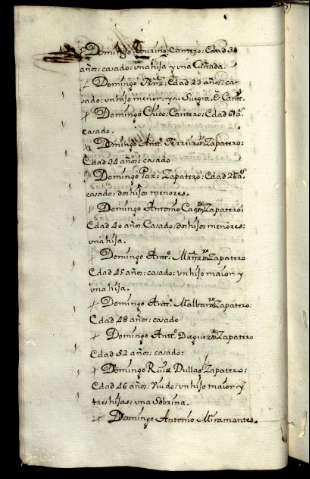 Domingo Touriño Cantero: Edad 30
años: casado: una hija y una Criada.
Domingo Edad 29 años: ca
sado: un hijo menor: y su Suegra
Domingo Cantero: Edad
casado.
Domingo Antt.º Zapatero:
Edad años: casado
Domingo Paz: Zapatero: Edad años:
casado: dos hijos menores.
Domingo Antonio Zapatero:
Edad 40 años Casado: dos hijos menores:
una hija.
Domingo Antt.º Zapatero
Edad 45 años: casado: un hijo maior: y
una hija.
Domingo Antt.º Malvar Zapatero:
Edad 28 años: casado
Domingo Antt.º Zapatero
Edad 52 años: casado:
Domingo Ruiz Zapatero:
Edad 46 años: Viudo: un hijo maior: y
tres hijas: una Sobrina.
Domingo Antonio Miramontes.